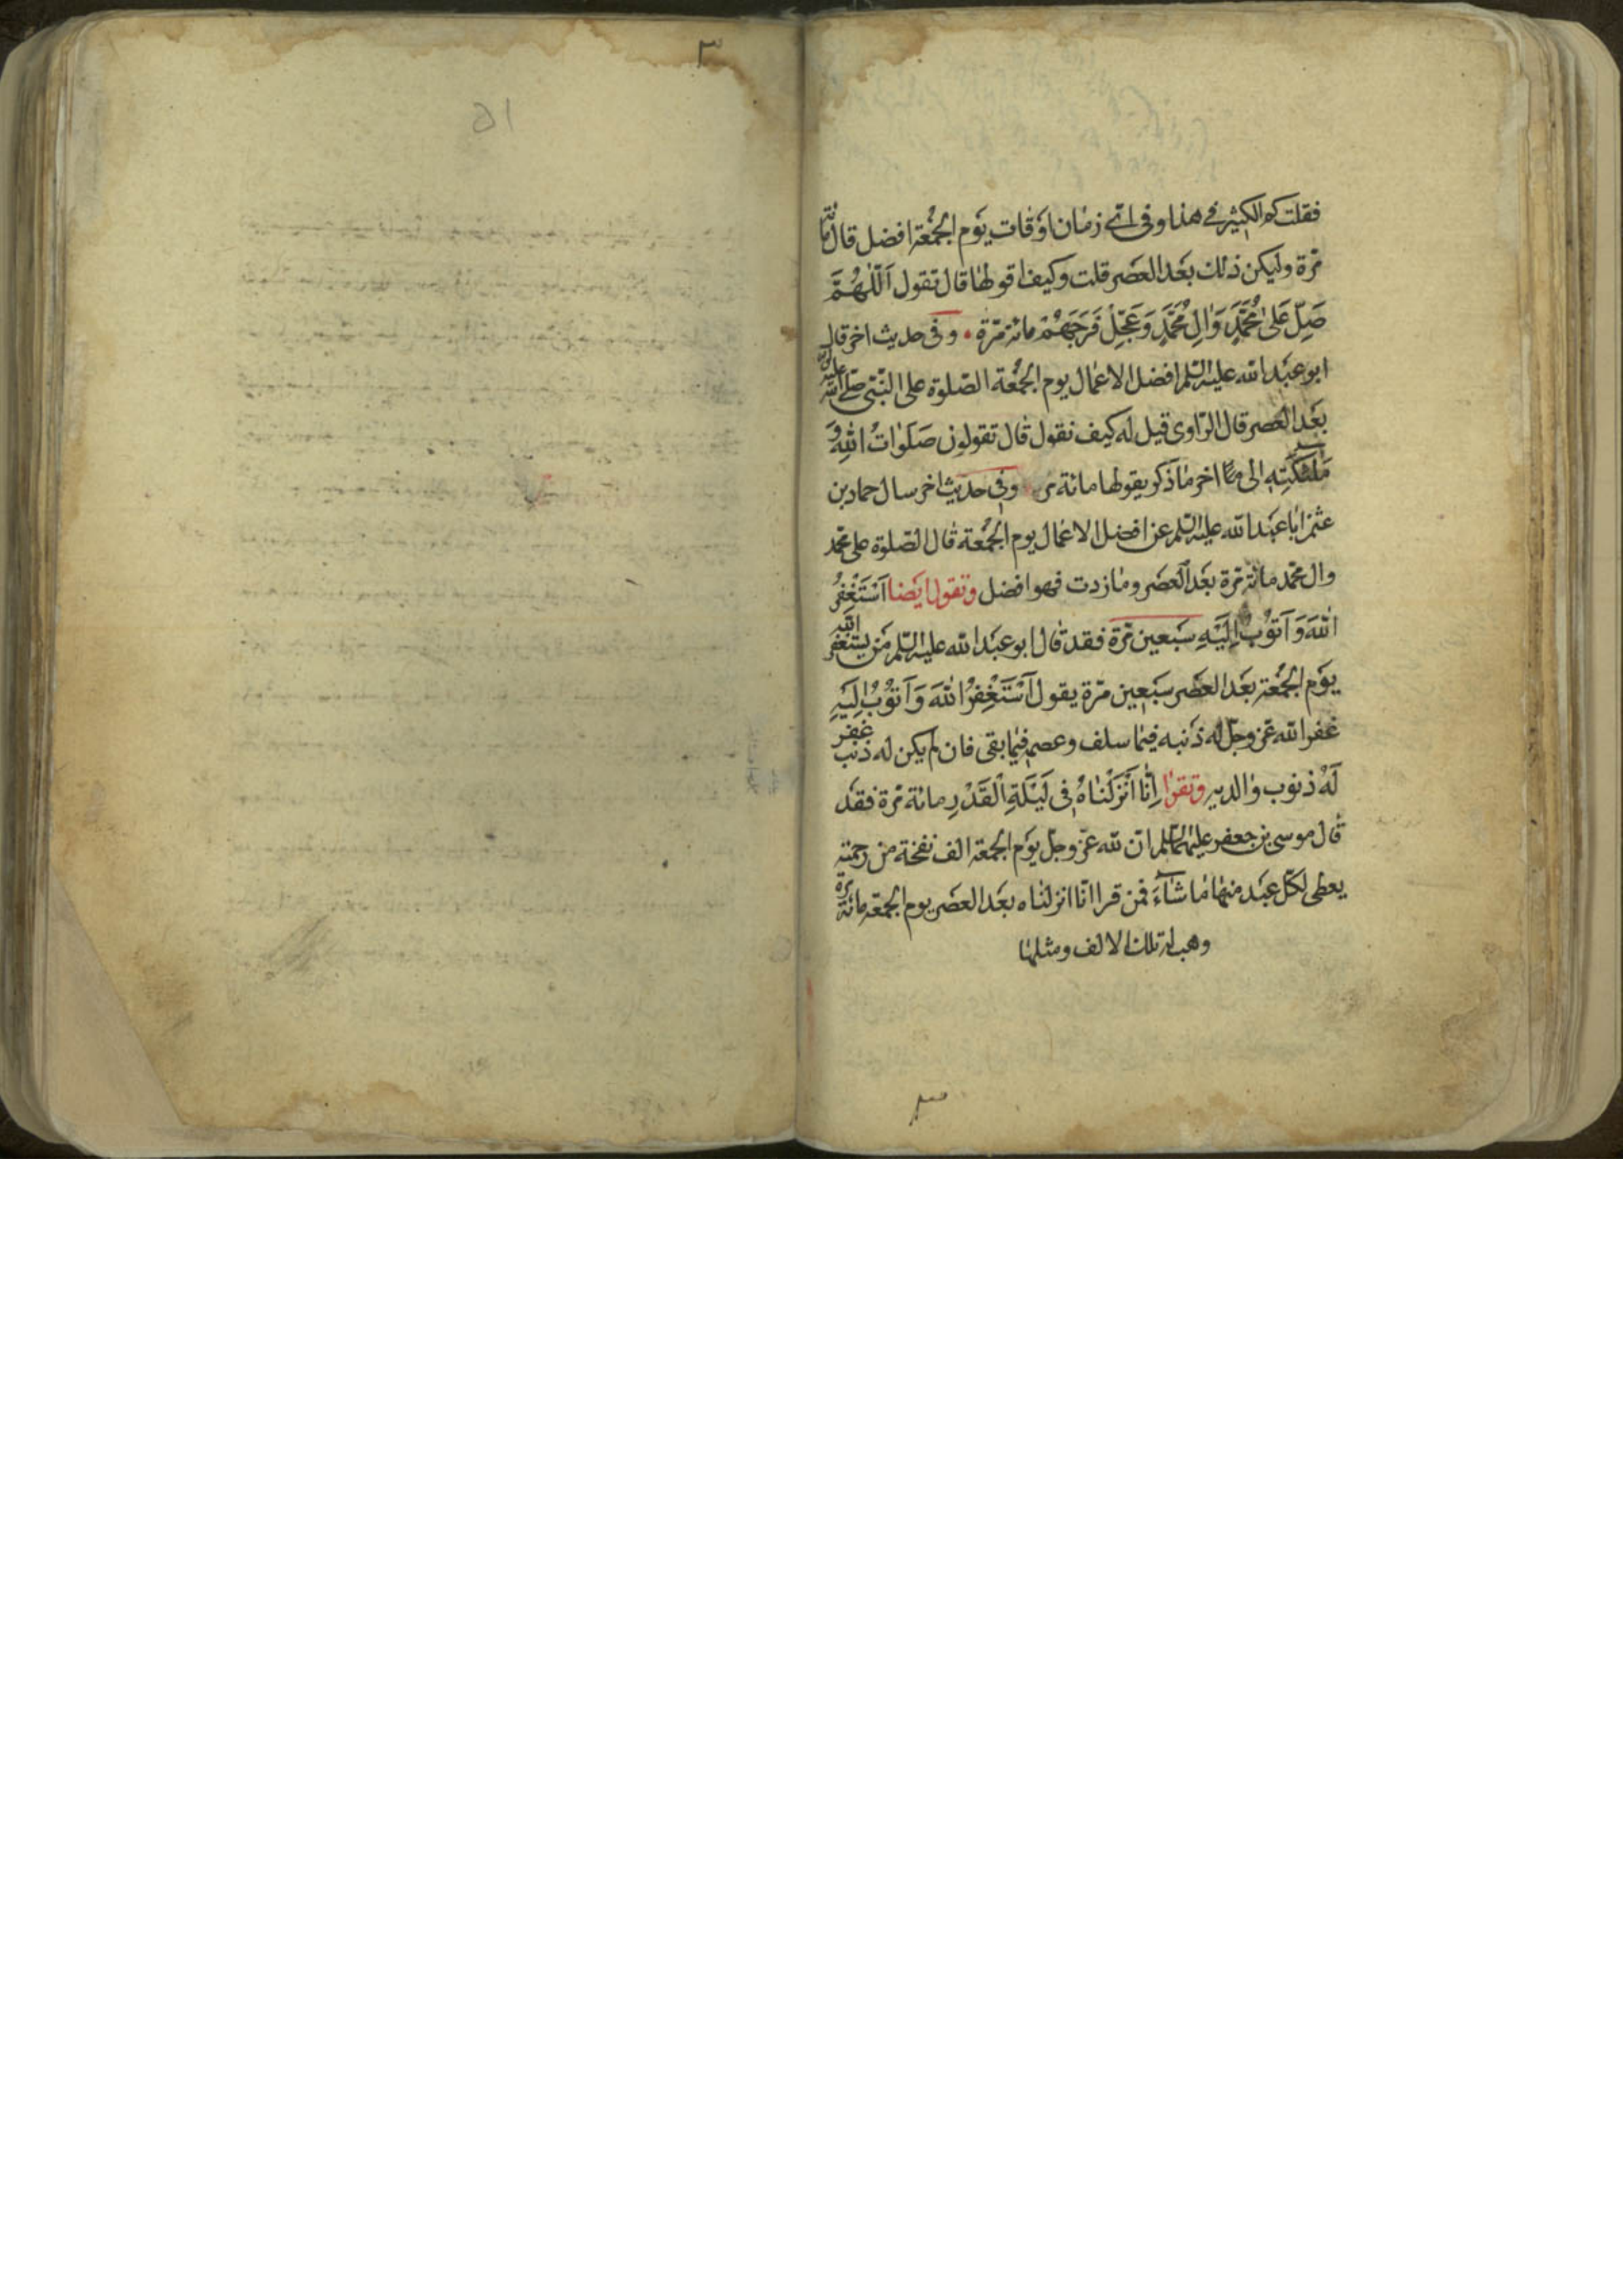 فقلت كم الكثير في هذا وفي اىّ زمان اوقات يوم الجمعة افضل قال مائة
مرّة وليكن ذلك بعد العصر قلت وكيف اقولها قال تقول اَللّهُمَّ
صَلِّ عَلى مُحَمَّدٍ وَالِ مُحَمَّدٍ وَعَجِّلْ فَرَجَهُمْ مائة مرّة وفى حديث اخر قال
ابو عبد الله عليه السّلم افضل الاعمال يوم الجمعة الصّلوة على النّبى صلّى الله عليه واله
بعد العصر قال الرّاوى قيل له كيف نقول قال تقولون صَلَوٰاتُ اللهِ وَ
مَلٰئِكَتِهِ الى اخر ما ذكر يقولها مائة مرة وفى حديث اخر سال حماد بن
عثمن ابا عبد الله عليه السّلم عن افضل الاعمال يوم الجمعة قال الصّلوة على محمّد
وال محمّد مائة مرّة بعد العصر وما زدت فهو افضل وتقول ايضا اَسْتَغْفِرُ
اللهَ وَ اَتُوْبُ اِلَيْهِ سبعين مرّة فقد قال ابو عبد الله عليه السّلم من يستغفر الله
يوم الجمعة بعد العصر سبعين مرّة يقول اَسْتَغْفِرُ اللهَ وَ اَتُوْبُ اِلَيْهِ
غفر الله عزّ وجلّ له ذنبه فيما سلف وعصمه فيما بقى فان لم يكن له ذنب غفر
لَهُ ذنوب والديه وتقرا اِنّٰا اَنْزَلْنٰاهُ فِى لَيْلَةِ الْقَدْرِ مائة مرّة فقد
قال موسى بن جعفر عليهما السّلم انّ لله عزّ وجلّ يوم الجمعة الف نفخة من رحمته
يعطى لكلّ عبد منها ما شاءَ فمن قرا انّا انزلناه بعد العصر يوم الجمعة مائة مرة
وهب له تلك الالف ومثلها